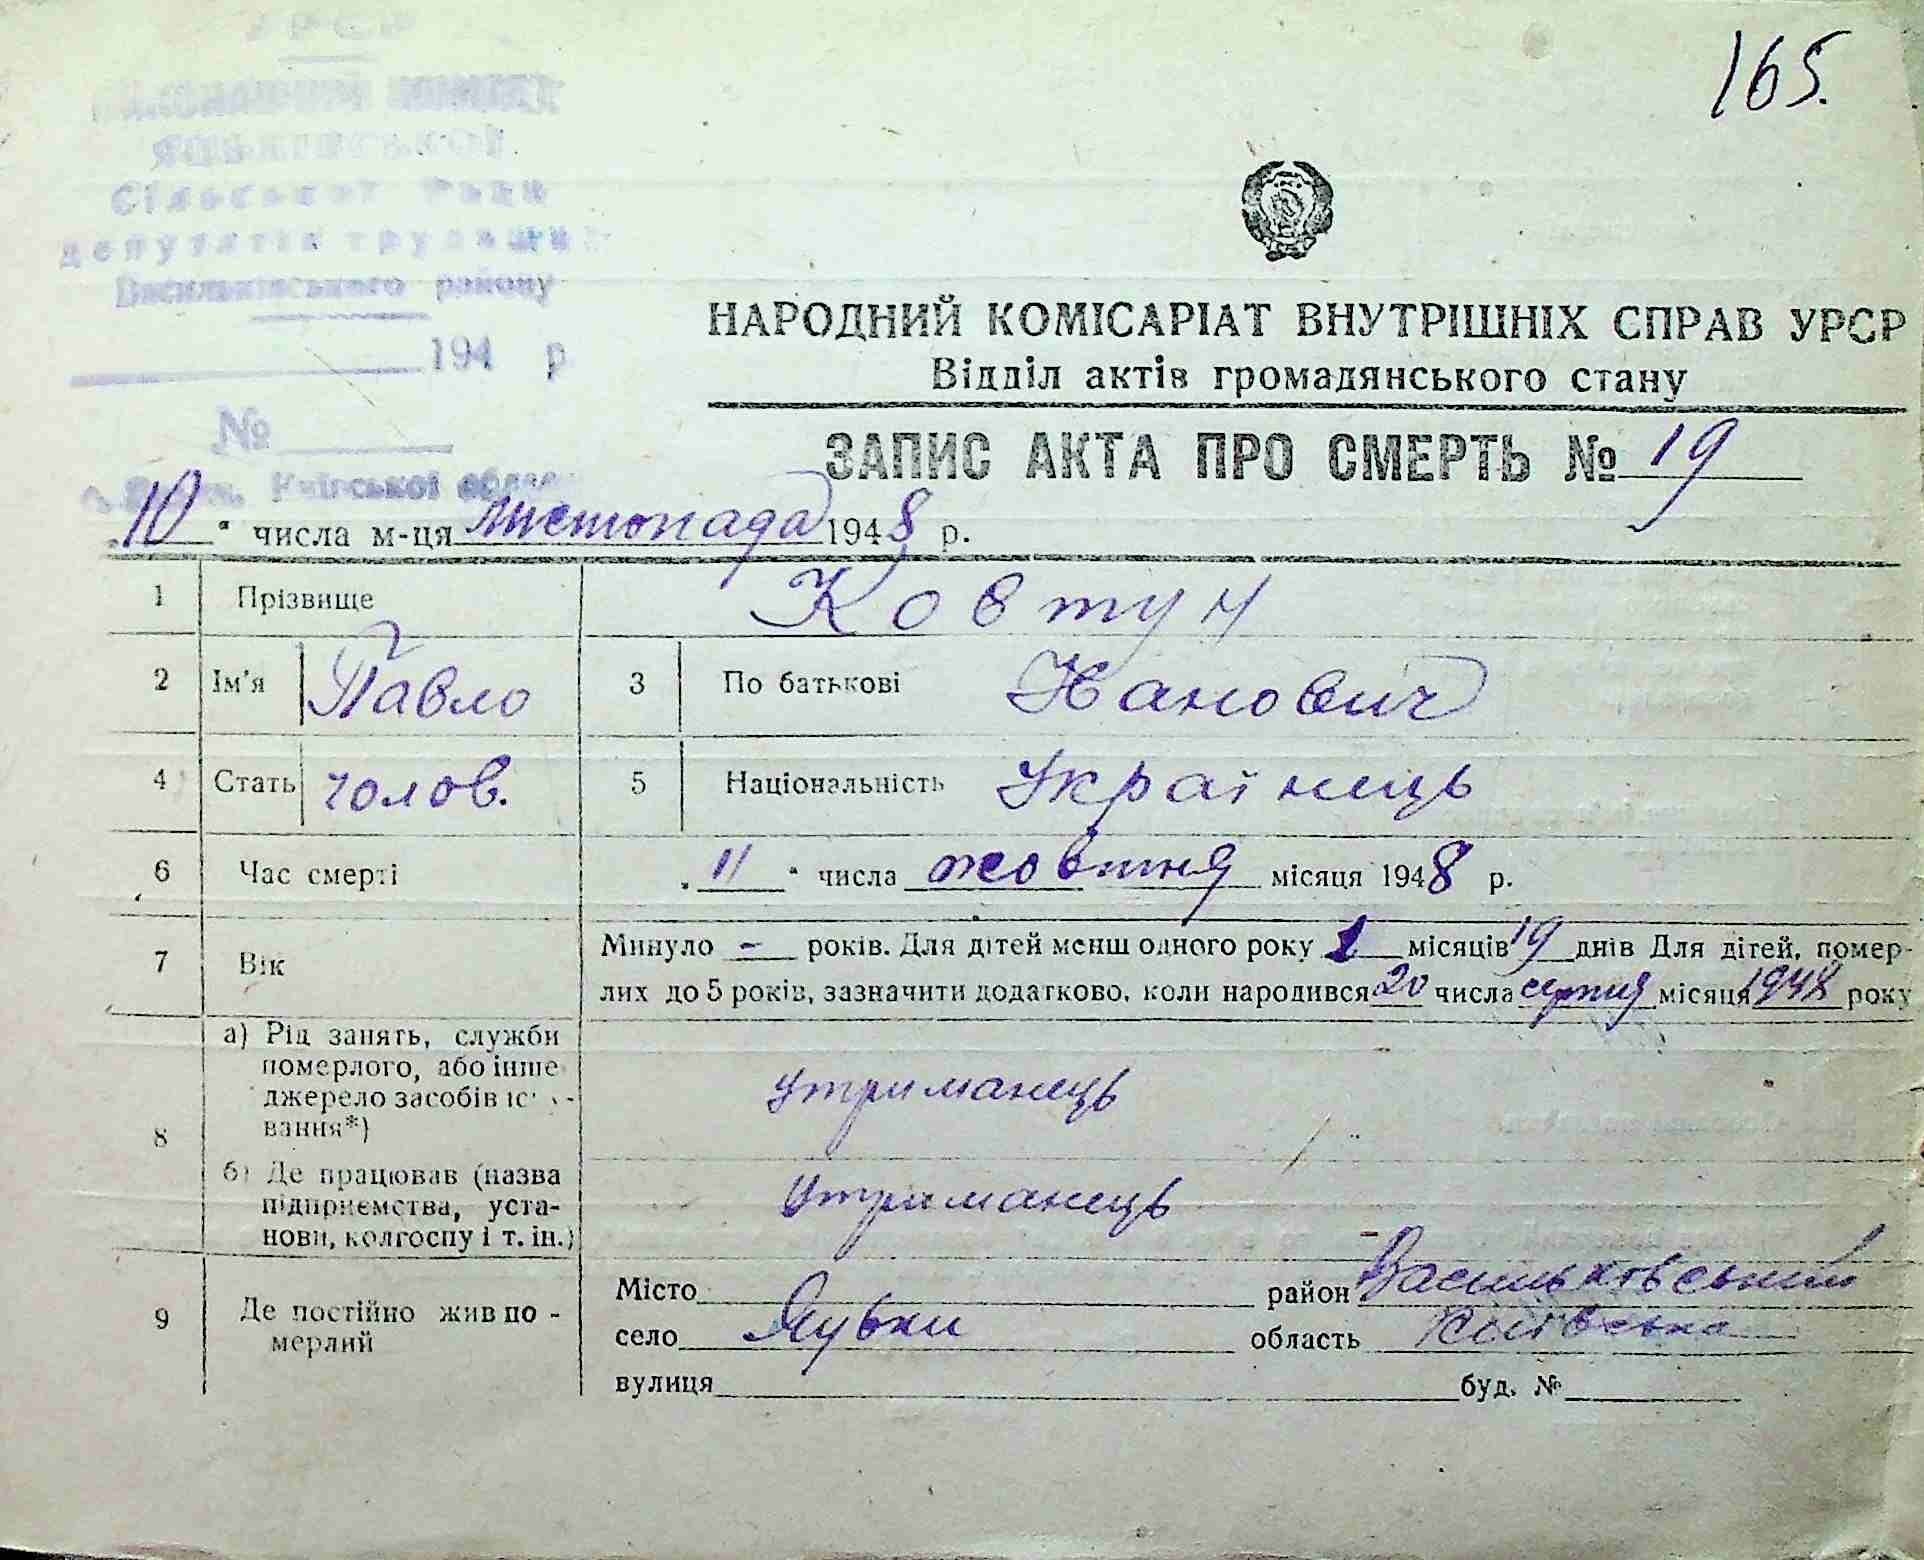 165.
УРСР
ВИКОНАВЧИЙ КОМІТЕТ
Сільської Ради
депутатів трудящих
Васильківського району
194 р
№
Київської област
НАРОДНИЙ КОМІСАРІАТ ВНУТРІШНІХ СПРАВ УРСР
Відділ актів громадянського стану
ЗАПИС АКТА ПРО СМЕРТЬ № 19
„10“ числа м-ця листопада 1948 р.
1 Прізвище Ковтун
2 Ім'я Павло 3 По батькові
4 Стать чолов. 5 Національність Українець
6 Час смерті „11“ числа жовтня місяця 1948 р.
7 Вік
Минуло - років. Для дітей менш одного року 1 місяців 19 днів Для дітей, помер-
лих до 5 років, зазначити додатково, коли народився 20 числа серпня місяця 1948 року
8
а) Рід занять, служби
померлого, або інше
джерело засобів існу-
вання*)
утриманець
б) Де працював (назва
підприємства, уста-
нови, колгоспу і т. ін.)
утриманець
9 Де постійно жив по-
мерлий
Місто район Васильковський
село область Київська
вулиця буд. №